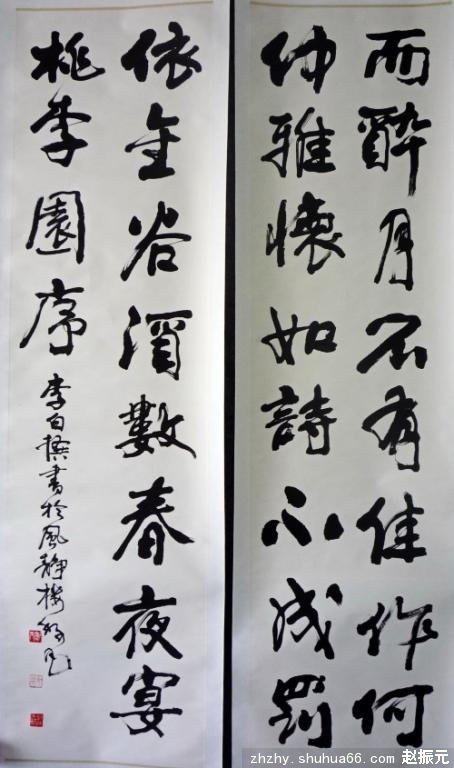 而醉月不有佳作何
伸雅懷如詩不成罰
依金谷酒數春夜宴
桃李園序 李白撰書於風靜樓
zhzhy.shuhua66.com 赵振元